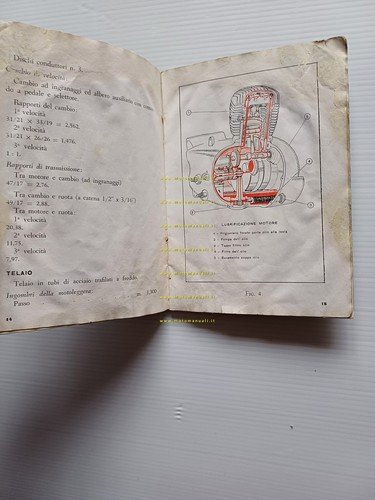 Dischi conduttori n. 3.
Cambio di velocità:
Cambio ad ingranaggi ed albero ausiliario con coman-
do a pedale e selettore.
Rapporti del cambio:
1ª velocità
31/21 × 33/19 = 2,562.
2ª velocità
31/21 × 26/26 = 1,476.
3ª velocità
1 : 1.
Rapporti di trasmissione:
Tra motore e cambio (ad ingranaggi)
47/17 = 2,76.
Tra cambio e ruota (a catena 1/2" x 3/16")
49/17 = 2,88.
Tra motore e ruota:
1ª velocità
20,38.
2ª velocità
11,75.
3ª velocità
7,97.
TELAIO
Telaio in tubi di acciaio trafilati a freddo.
Ingombri della motoleggera:
Passo m. 1,300
14
1
2
3
4
5
LUBRIFICAZIONE MOTORE
2 - Pompa dell'olio
4 - Filtro dell'olio
FIG. 4
15
www.motomanuali.it
www.motomanuali.it
www.motomanuali.it